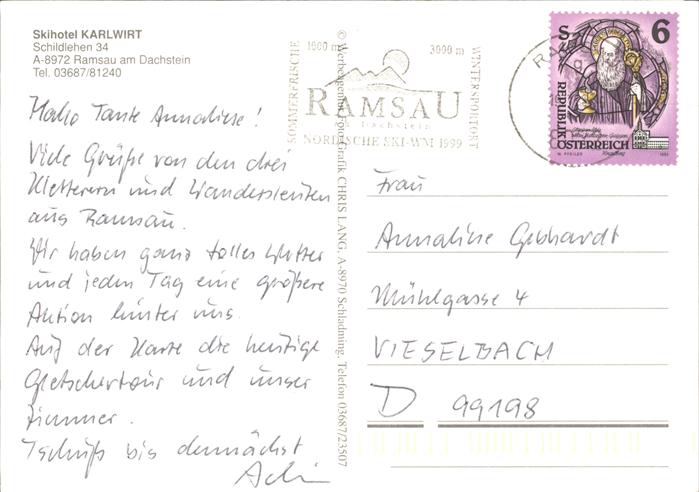 Skihotel KARLWIRT
Schildlehen 34
A-8972 Ramsau am Dachstein
Tel. 03687/81240
Hallo Tante Annaliese!
Viele Grüße von den drei
Kletterern und Wandersleuten
aus Ramsau.
Wir haben ganz tolles Wetter
und jeden Tag eine größere
Aktion hinter uns.
Auf der Karte die heutige
Gletschertour und unser
Zimmer.
Tschüß bis demnächst
© Werbeagentur CHRIS LANG, A-8970 Schladming, Telefon 03687/23507
SOMMERFRISCHE
1000 m
3000 m
WINTERSPORTORT
RAMSAU
Dachstein
NORDISCHE SKI-WM 1999
S 6
REPUBLIK
ÖSTERREICH
Frau
Annaliese Gebhardt
Mühlgasse 4
VIESELBACH
D 99198